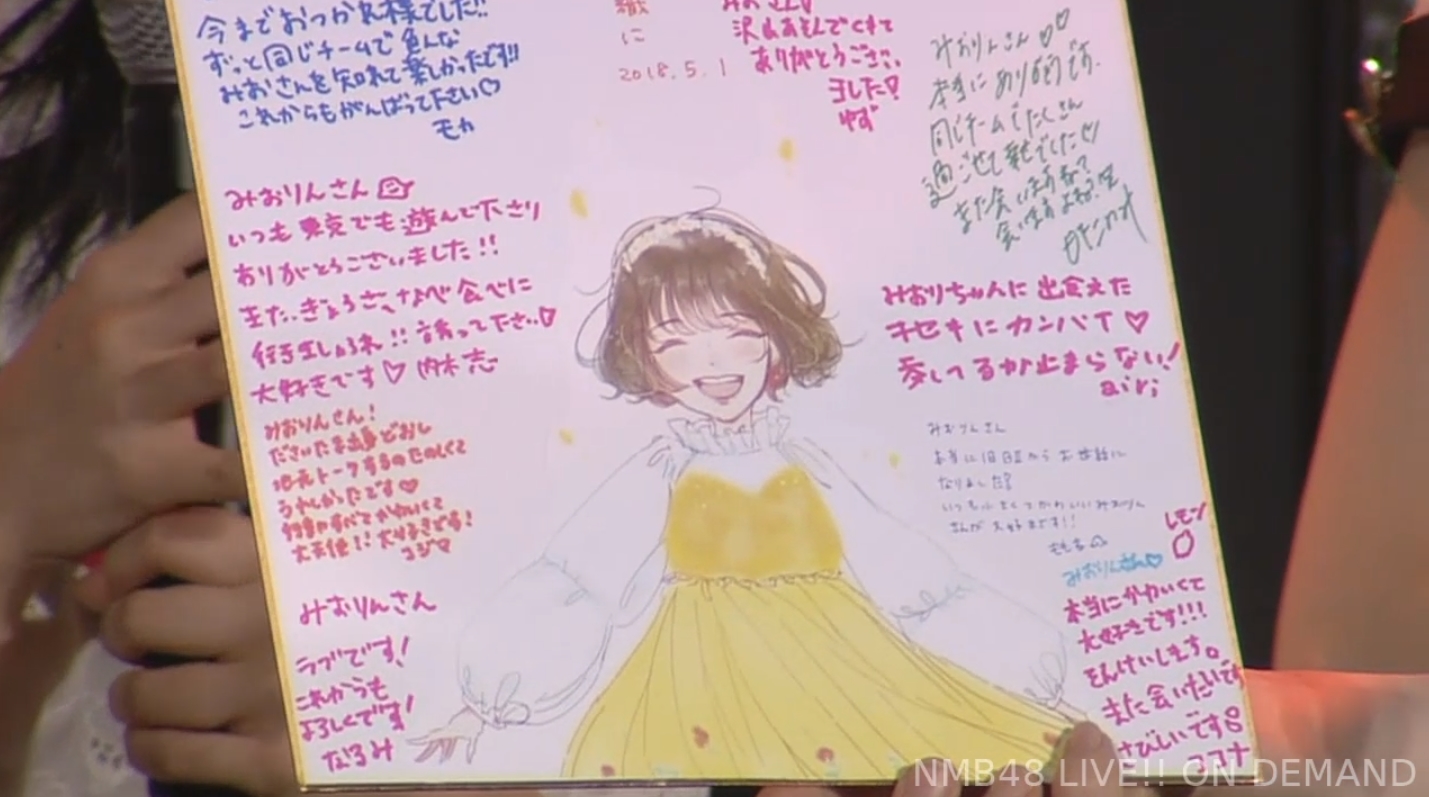 今までおつかれ様でした!!
ずっと同じチームで色んな
みおさんを知れて楽しかったです!!
これからもがんばって下さい♡
モカ
に
2018.5.1
沢山あそんでくれて
ありがとうござい
ました!
ゆず
みおりんさん♡♡
本当にあり的です.
同じチームでたくさん
過ごせて幸せでした♡
また会いますよね?
会いますよね?
みおりんさん
いつも東京でも遊んで下さり
ありがとうございました!!
また、ぎょうざ、なべ食べに
行きましょうね!!誘って下さい♡
大好きです♡内木志
みおりちゃんに出会えた
キセキにカンパイ♡
愛してるが止まらない!
airi
みおりんさん!
ださいたま出身どおし
地元トークするのたのしくて
うれしかったです♡
すべてかわいくて
大天使!!大好きです!
コジ♡
みおりんさん
本当に旧Ⅱからお世話に
なりました
いつも小さくてかわいいみおりん
さんが大好きです!!
ももる
みおりんさん
ラブです!
これからも
よろしくです!
なるみ
レモン
みおりんさん♡
本当にかわいくて
大好きです!!!
そんけいします。
また会いたいです
さびしいです
ココナ
NMB48 LIVE!! ON DEMAND